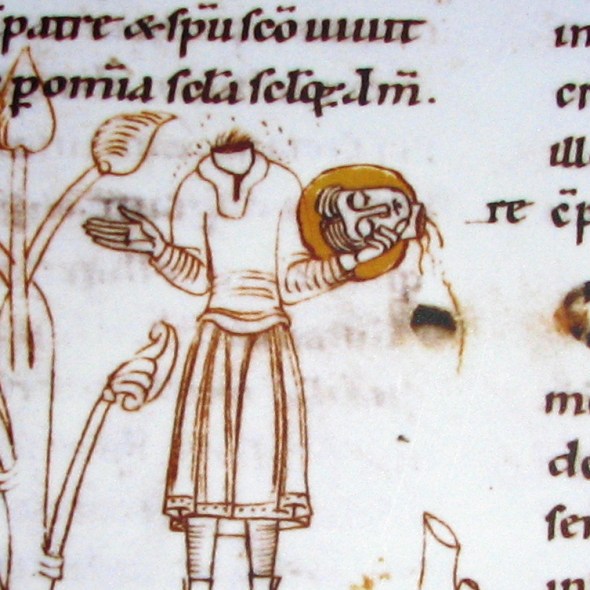 patre & sp̄u sc̄o uiuit
p om̄ia scl̄a scl̄oꝝ. Am̄.
in
cr
ill
re c̄p
m
do
ser
in